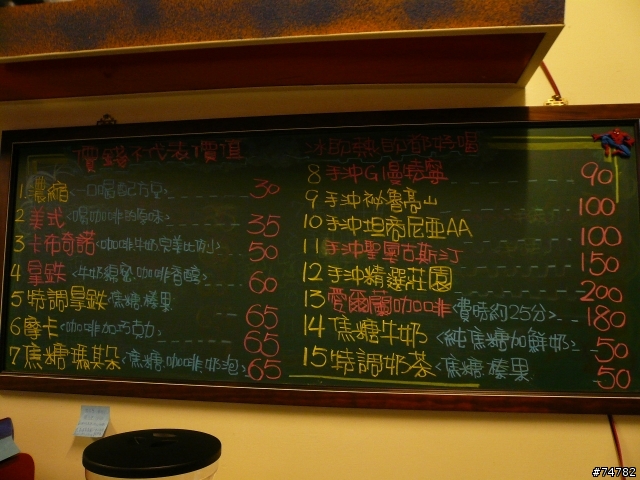 價錢不代表價值
1 濃縮 30
2 美式<喝咖啡的原味> 35
3 卡布奇諾<咖啡牛奶完美比例> 50
4 拿鉄<牛奶綿密.咖啡香醇> 60
5 特調拿鉄<焦糖.榛果 65
6 摩卡<咖啡加巧克力 65
7 焦糖瑪琪朵<焦糖.咖啡.奶泡> 65
冰的熱的都好喝
8 手沖G1曼特寧 90
9 手沖祕魯高山 100
10 手沖坦尚尼亞AA 100
11 手沖聖奧古斯汀 150
12 手沖精選莊園 200
13 愛爾蘭咖啡<費時約25分> 180
14 焦糖牛奶<純焦糖加鮮奶> 50
15 特調奶茶<焦糖.榛果 50
#74782